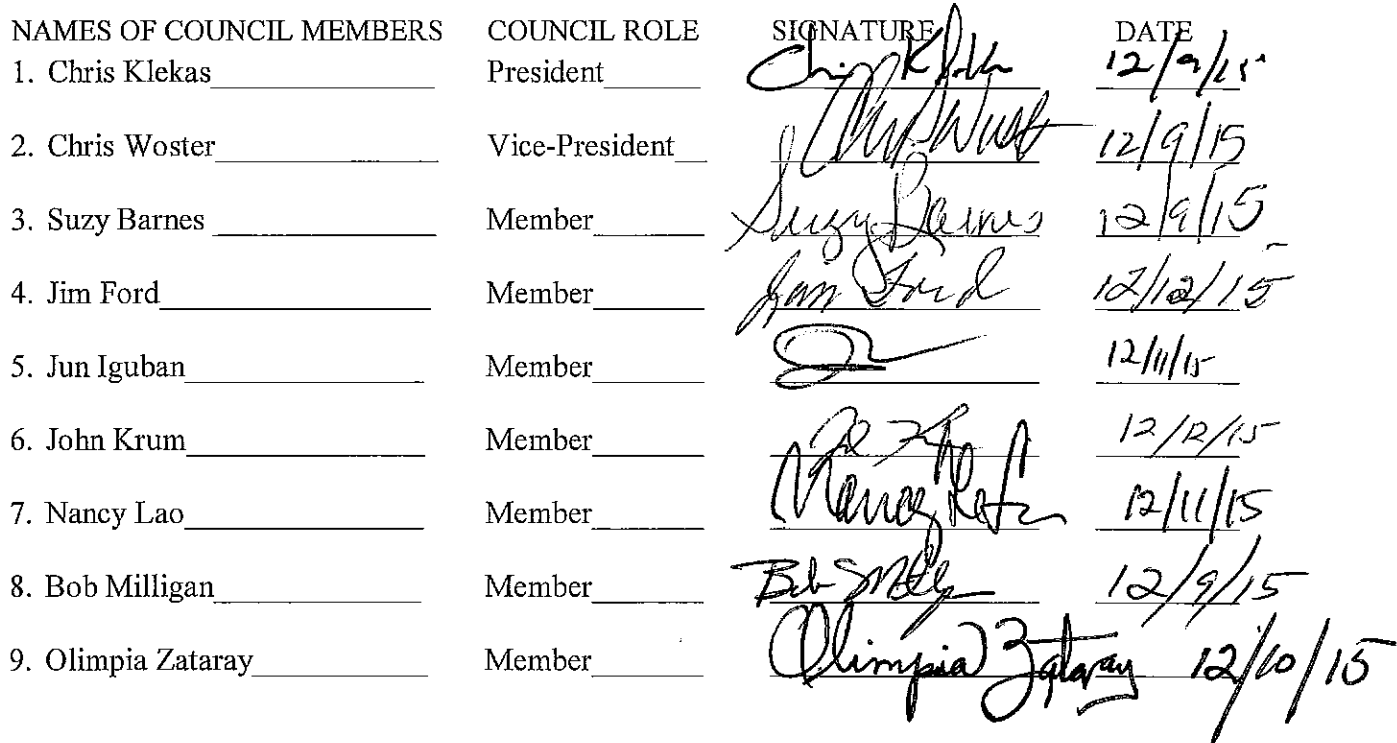 NAMES OF COUNCIL MEMBERS COUNCIL ROLE SIGNATURE DATE
1. Chris Klekas President 12/9/15
2. Chris Woster Vice-President 12/9/15
3. Suzy Barnes Member Suzy Barnes 12/9/15
4. Jim Ford Member Jim Ford 12/12/15
5. Jun Iguban Member 12/11/15
6. John Krum Member 12/12/15
7. Nancy Lao Member Nancy 12/11/15
8. Bob Milligan Member Bob 12/9/15
9. Olimpia Zataray Member Olimpia Zataray 12/10/15